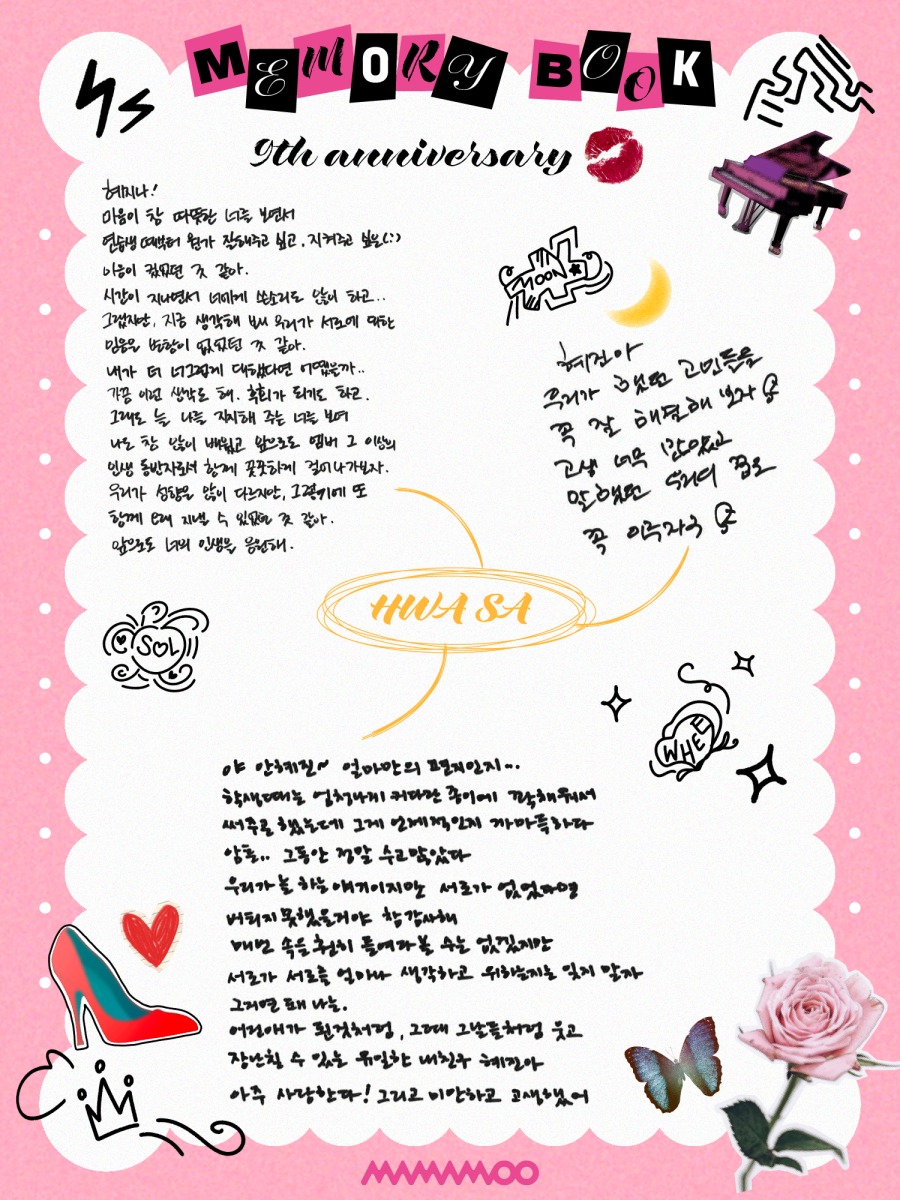 MEMORY BOOK
9th anniversary
혜지나!
마음이 참 따뜻한 너를 보면서
연습생때부터 뭔가 잘해주고 싶고, 지켜주고 싶은(:)
마음이 컸었던 것 같아.
시간이 지나면서 너에게 쓴소리도 많이 하고..
그렇지만, 지금 생각해 보니 우리가 서로에 대한
믿음은 변함이 없었던 것 같아.
내가 더 너그럽게 대했다면 어땠을까..
가끔 이런 생각도 해. 후회가 되기도 하고.
그래도 늘 나를 지지해 주는 너를 보며
나도 참 많이 배웠고 앞으로도 멤버 그 이상의
인생 동반자로서 함께 꿋꿋하게 걸어나가보자.
우리가 성향은 많이 다르지만, 그렇기에 또
함께 오래 지낼 수 있었던 것 같아.
앞으로도 너의 인생을 응원해.
MOON★
혜진아
우리가 했던 고민들을
꼭 잘 해결해 보자
고생 너무 많았고
말했던 우리의 꿈도
꼭 이루자우
HWA SA
SOL
WHEE
야 안혜진~ 얼마만의 편지인지..
학생때는 엄청나게 커다란 종이에 꽉채워서
써주곤 했는데 그게 언제적인지 까마득하다
암튼.. 그동안 정말 수고많았다
우리가 늘 하는 얘기이지만 서로가 없었다면
버티지 못했을거야 참 감사해
매번 속을 훤히 들여다볼 수는 없겠지만
서로가 서로를 얼마나 생각하고 위하는지는 잊지 말자
그거면 돼 나는.
어린애가 된것처럼, 그때 그날들처럼 웃고
장난칠 수 있는 유일한 내친구 혜진아
아주 사랑한다! 그리고 미안하고 고생했어
MAMAMOO